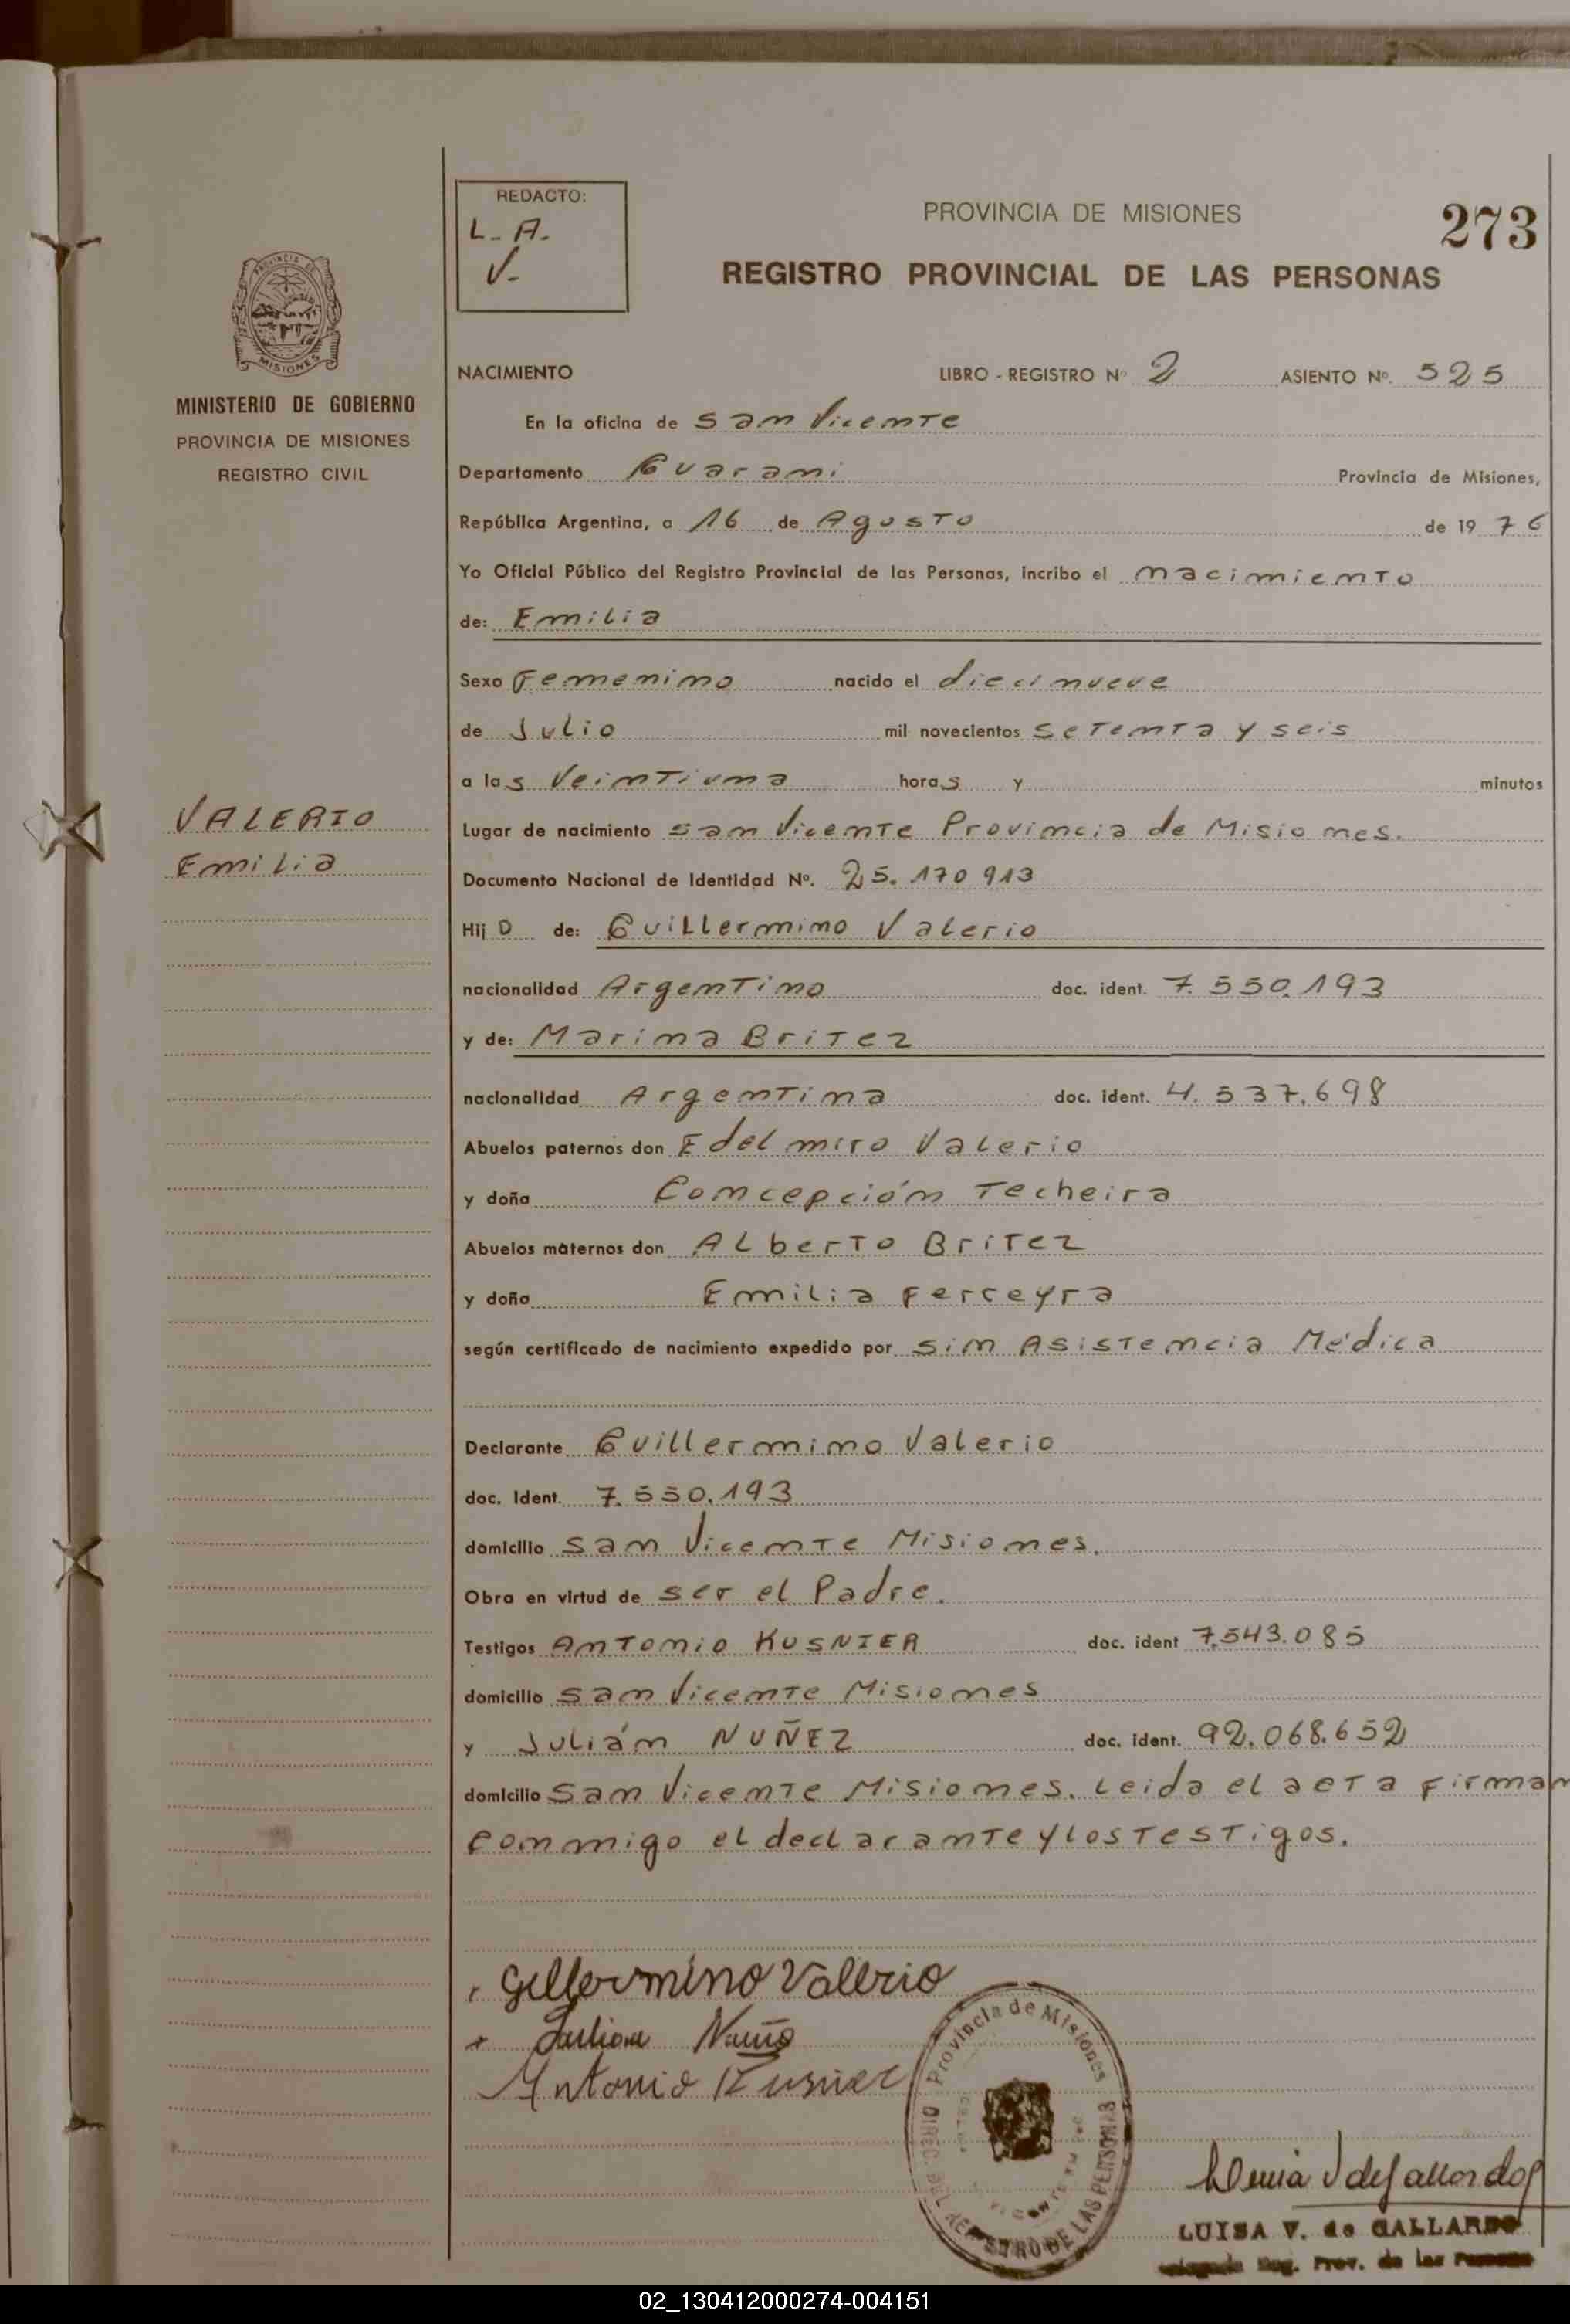 REDACTO:
L. A.
V.
PROVINCIA DE MISIONES
273
REGISTRO PROVINCIAL DE LAS PERSONAS
PROVINCIA DE
MISIONES
MINISTERIO DE GOBIERNO
PROVINCIA DE MISIONES
REGISTRO CIVIL
NACIMIENTO LIBRO - REGISTRO Nº 2 ASIENTO Nº. 525
En la oficina de San Vicente
Departamento Guarani Provincia de Misiones,
República Argentina, a 16 de Agosto de 19 76
Yo Oficial Público del Registro Provincial de las Personas, incribo el nacimiento
de: Emilia
Sexo Femenino nacido el diecinueve
de Julio mil novecientos setenta y seis
a las veintiuna horas y minutos
VALERIO
Emilia
Lugar de nacimiento San Vicente Provincia de Misiones.
Documento Nacional de Identidad Nº. 25.170 913
Hij a de: Guillermino Valerio
nacionalidad Argentino doc. ident. 7.550.193
y de: Marina Britez
nacionalidad Argentina doc. ident. 4.537.698
Abuelos paternos don Edelmiro Valerio
y doña Concepción Techeira
Abuelos maternos don Alberto Britez
y doña Emilia Ferreyra
según certificado de nacimiento expedido por sin Asistencia Médica
Declarante Guillermino Valerio
doc. Ident. 7.550.193
domicilio San Vicente Misiones.
Obra en virtud de ser el Padre.
Testigos Antonio KUSNIER doc. ident 7.543.085
domicilio San Vicente Misiones
y Julián NUÑEZ doc. ident. 92.068.652
domicilio San Vicente Misiones. Leida el acta firman
conmigo el declarante y los testigos.
Gellermino Valerio
Julian Nuñes
Antonio Kusnier
Provincia de Misiones
DIREC. DEL REGISTRO DE LAS PERSONAS
LUISA V. de GALLARDO
Reg. Prov. de las Personas
02_130412000274-004151